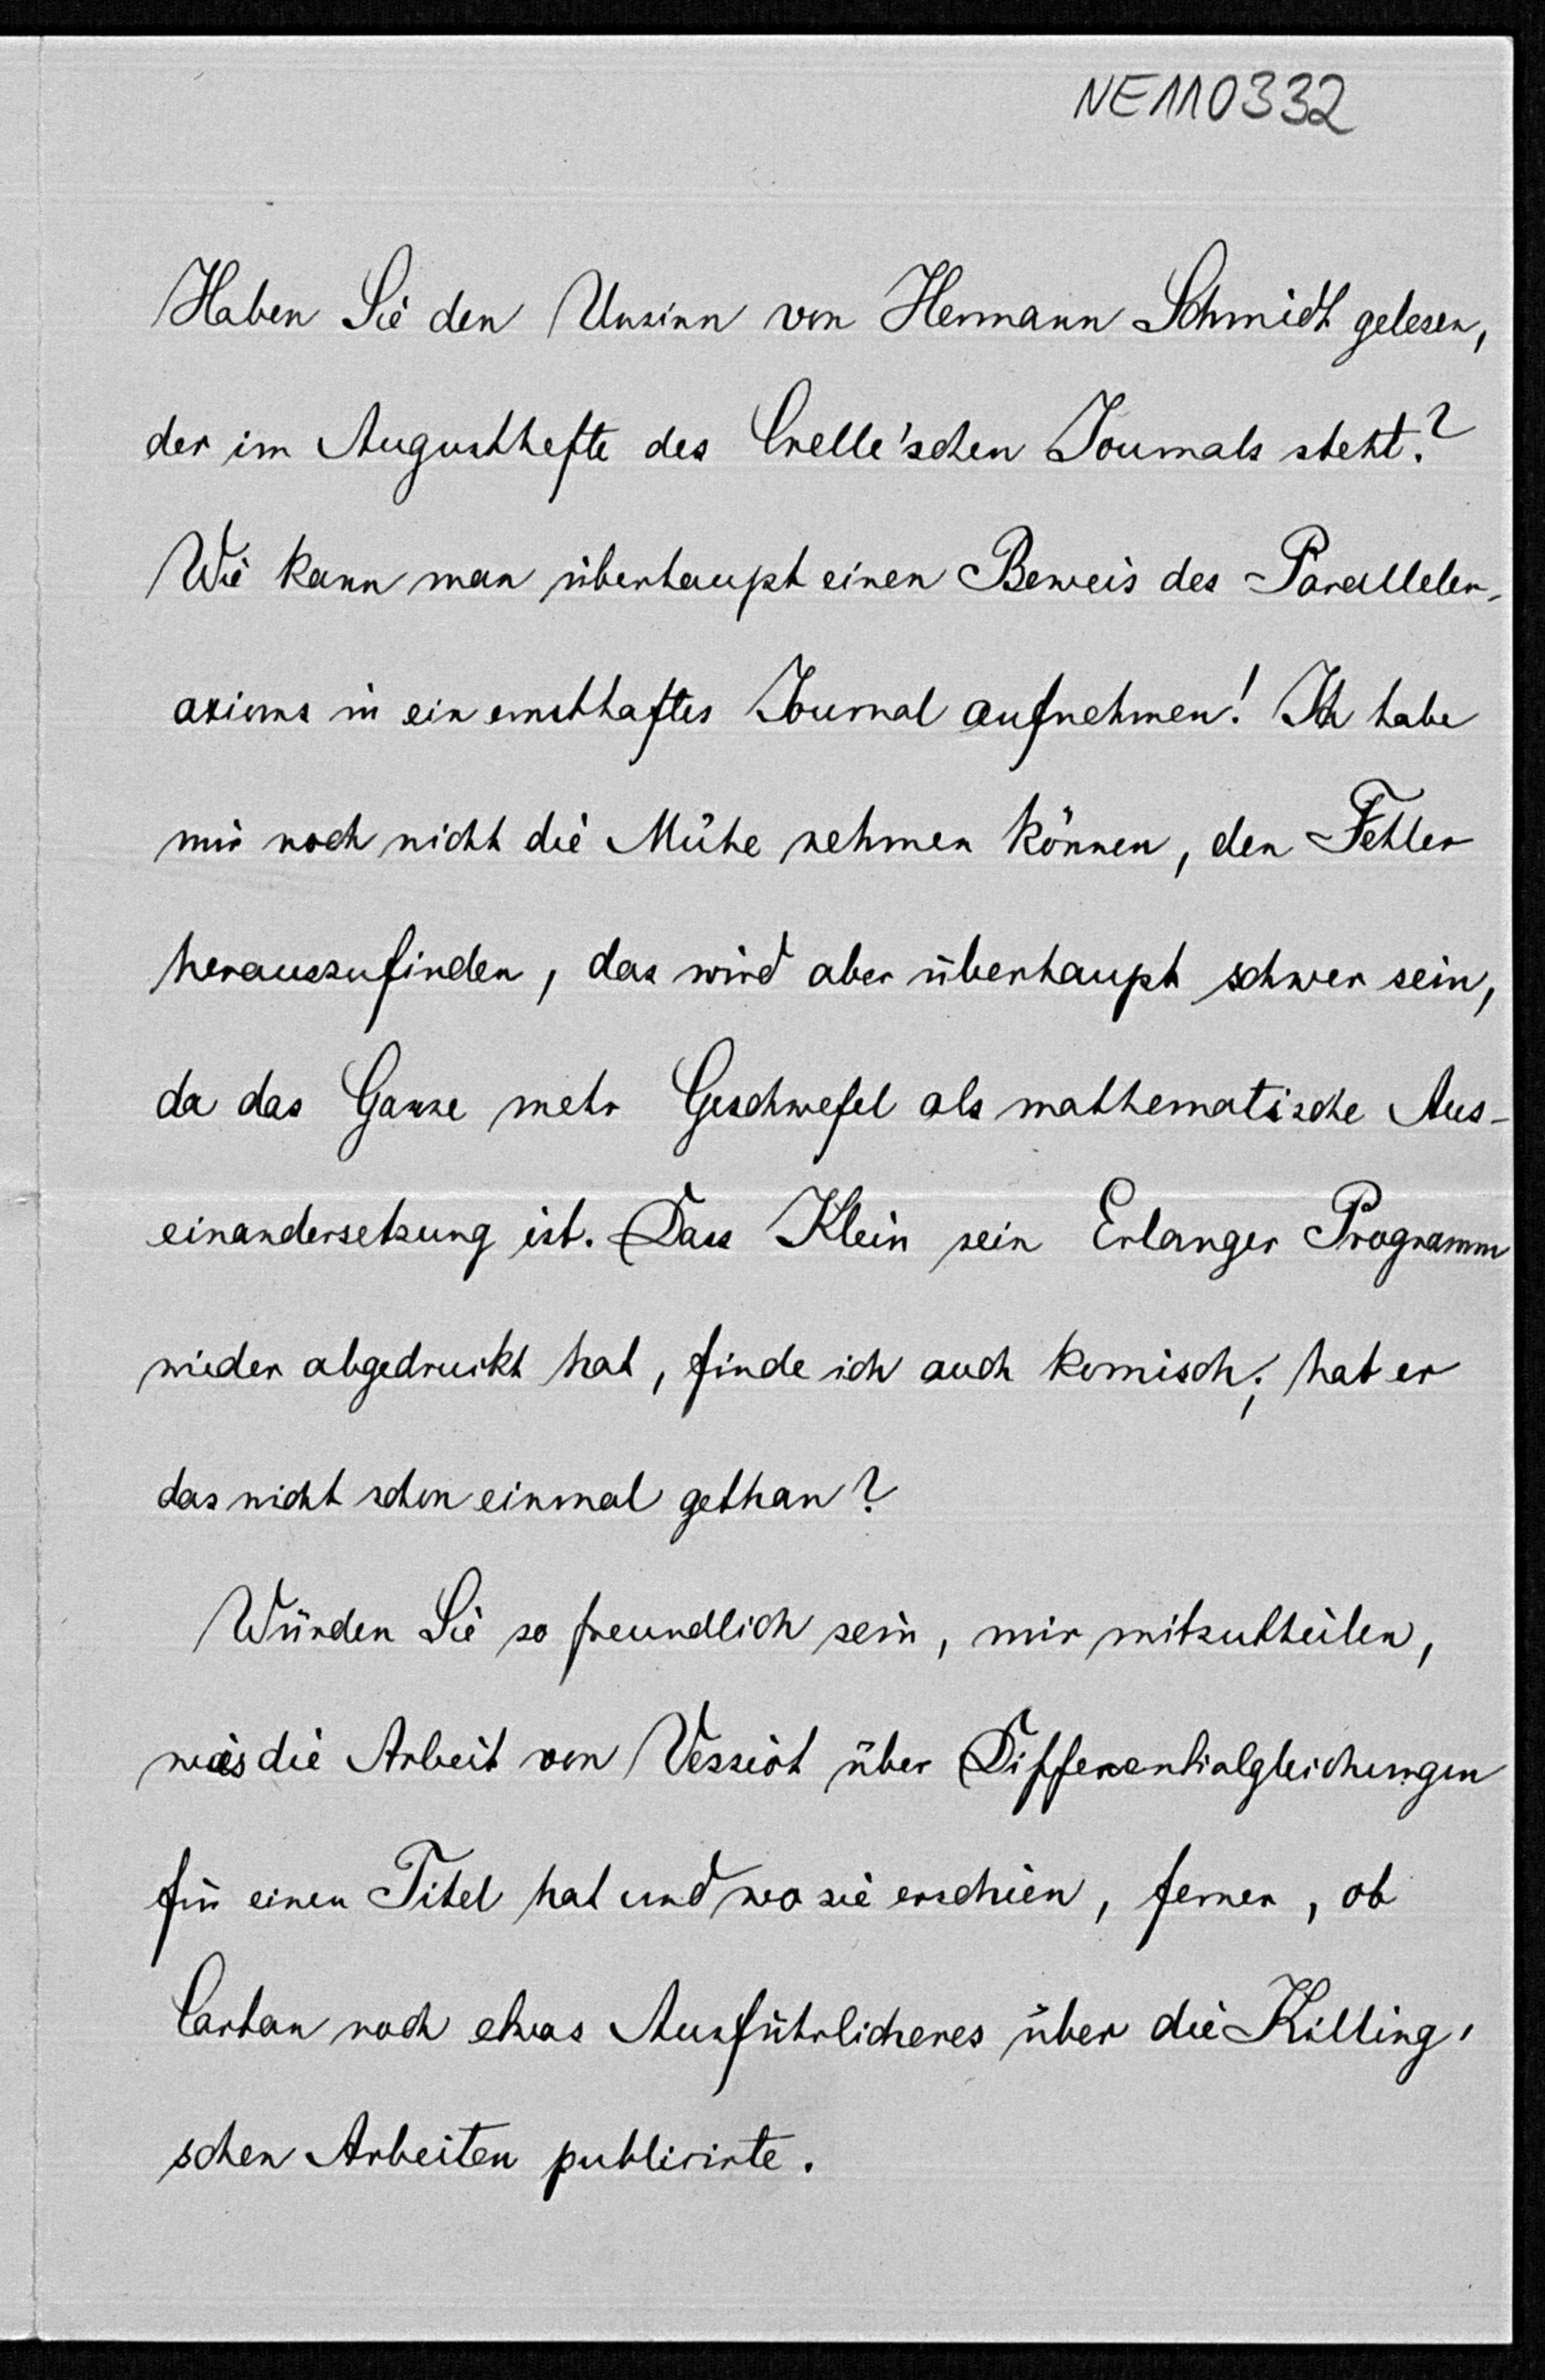 NE110332
Haben Sie den Unsinn von Hermann Schmidt gelesen,
der im Augusthefte des Crelle'schen Journals steht?
Wie kann man überhaupt einen Beweis des Parallelen-
axioms in ein ernsthaftes Journal aufnehmen! Ich habe
mir noch nicht die Mühe nehmen können, den Fehler
herauszufinden, das wird aber überhaupt schwer sein,
da das Ganze mehr Geschwefel als mathematische Aus-
einandersetzung ist. Dass Klein sein Erlanger Programm
wieder abgedruckt hat, finde ich auch komisch; hat er
das nicht schon einmal gethan?
Würden Sie so freundlich sein, mir mitzutheilen,
was die Arbeit von Vessiot über Differentialgleichungen
für einen Titel hat und wo sie erschien, ferner, ob
Cartan noch etwas Ausführlicheres über die Killing'
schen Arbeiten publicirte.